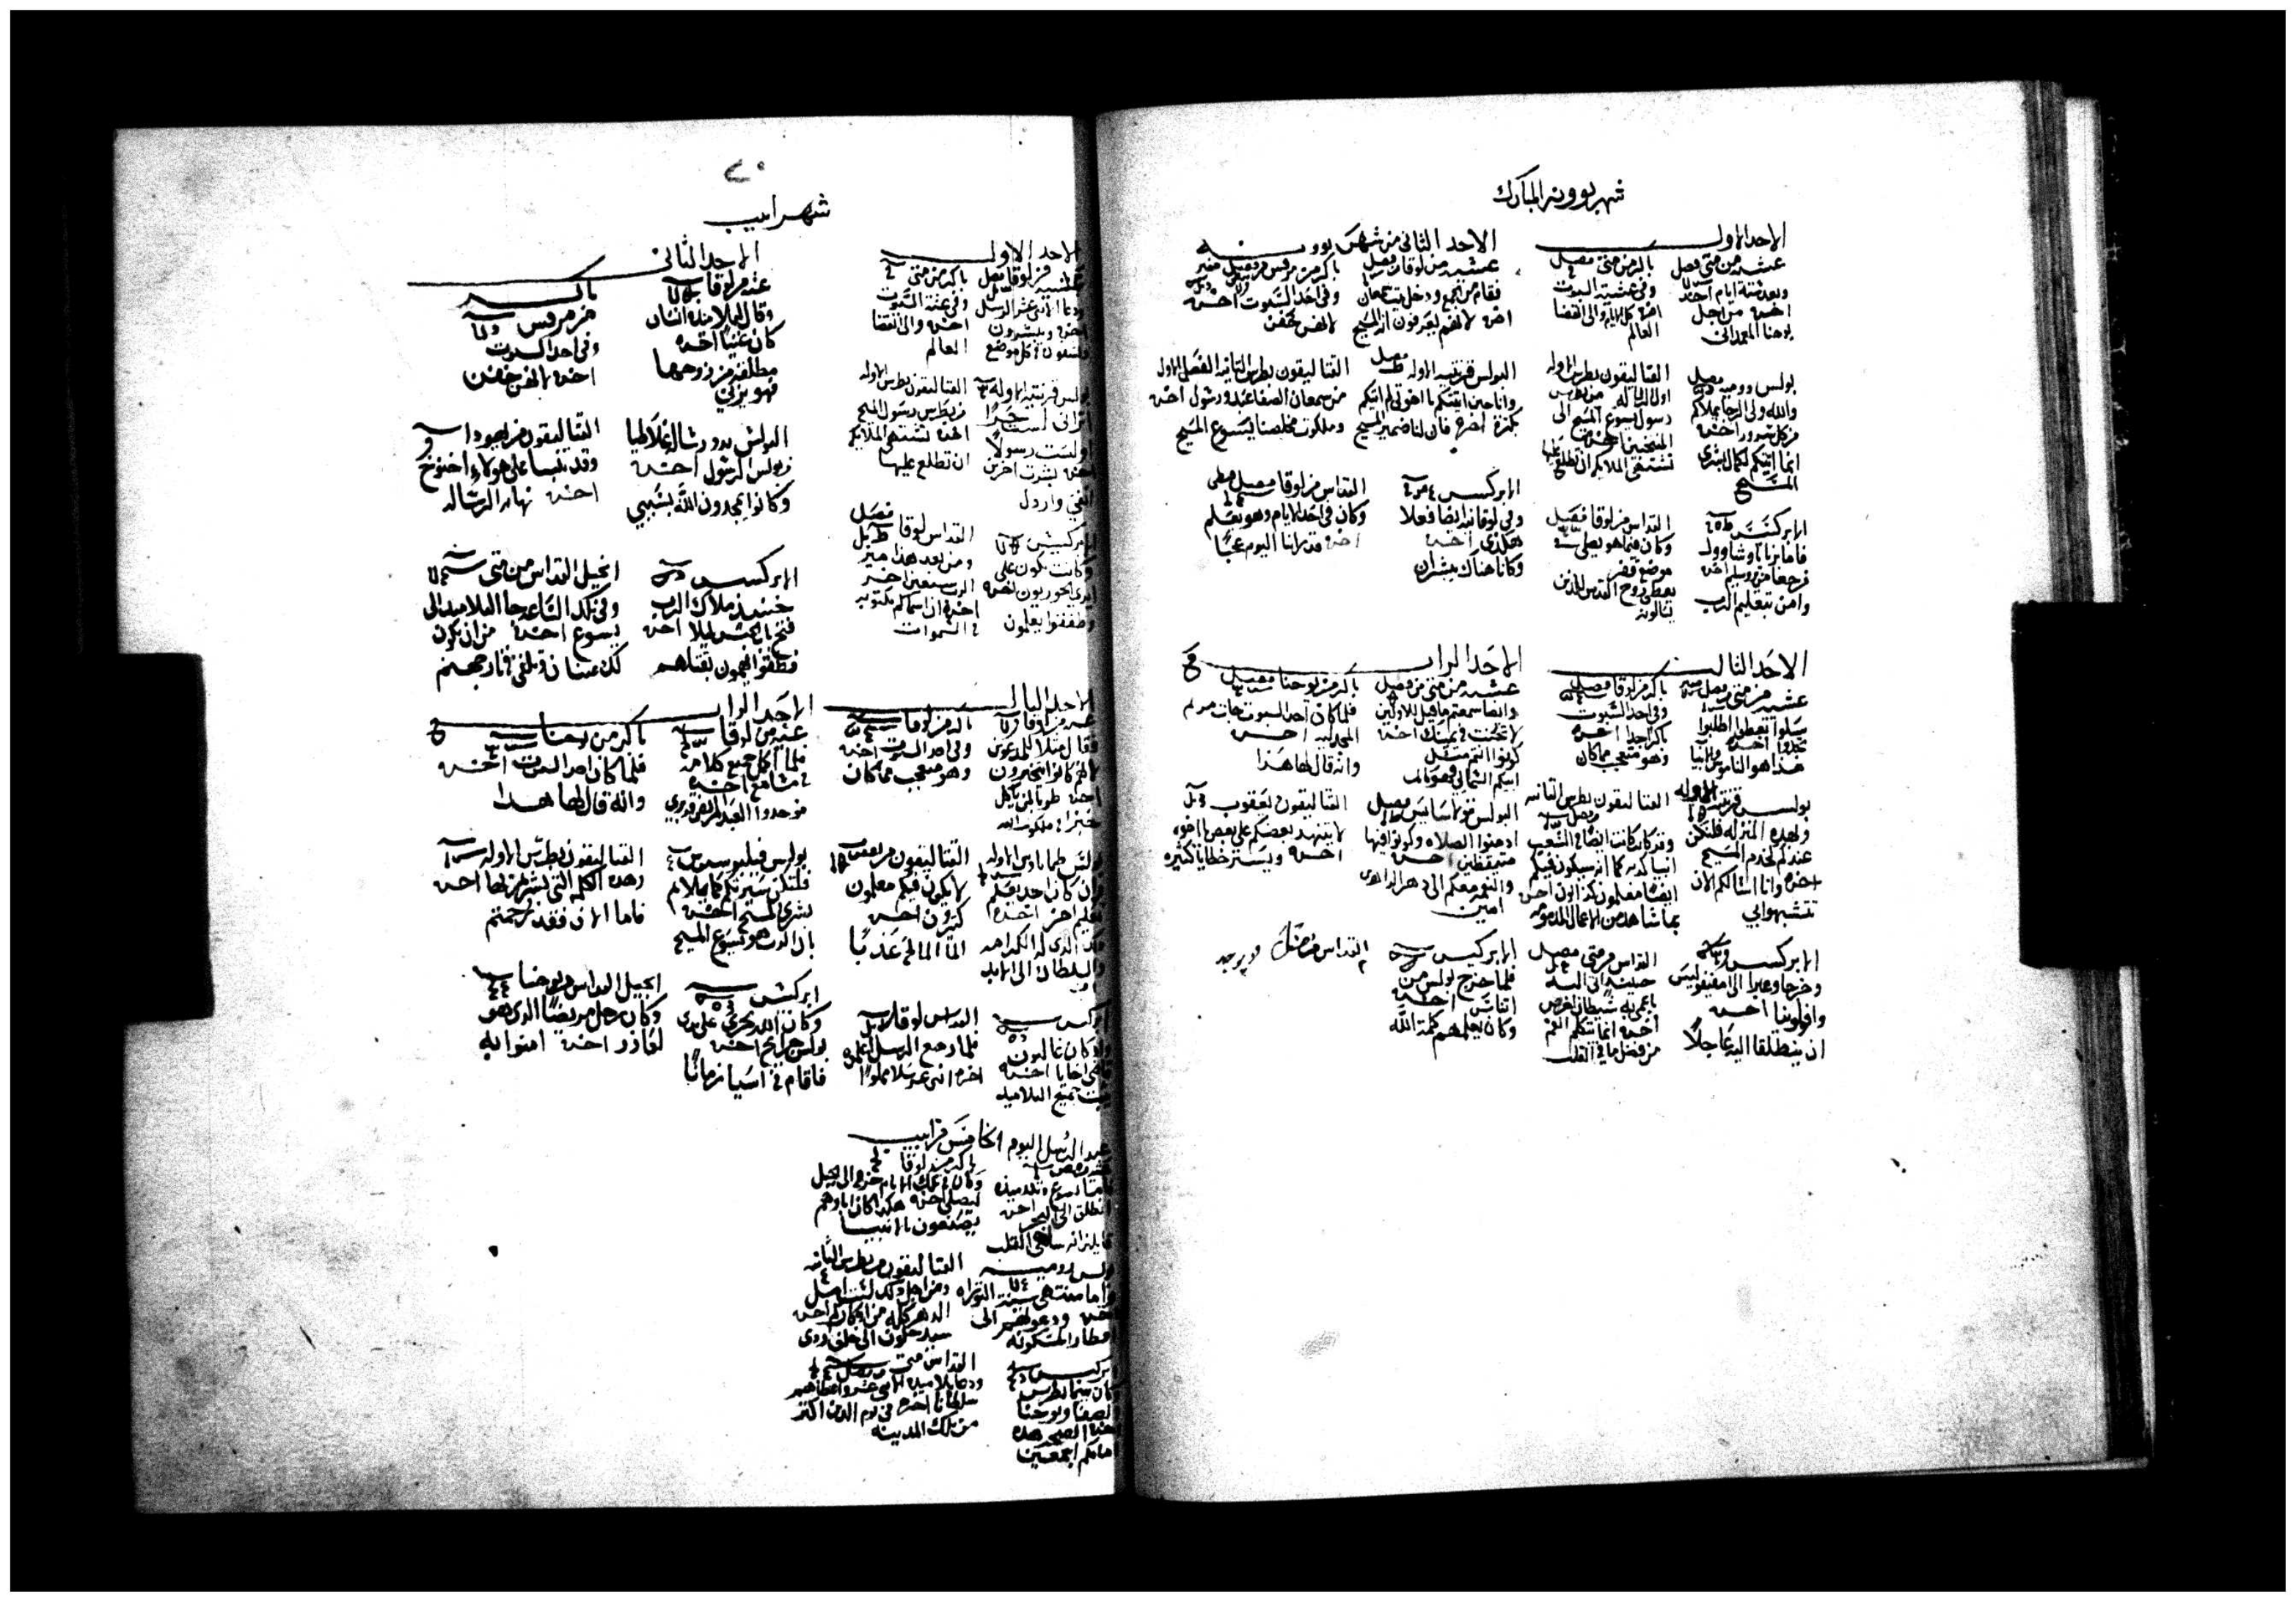 شهر بوونه المبارك
الاحد الاول
عشيه من متى فصل
وبعد ستة ايام اخذ
اخره من اجل
يوحنا المعمدانى
باكر من متى فصل
وفى عشية السبوت
اخره كل الايام والى انقضا
العالم
بولس روميه فصل
والله ولى الرجا يملاكم
من كل سرور اخره
انما اتيتكم لكمال بشرى
المسيح
القتاليقون بطرس الاوله
اول الرساله من بطرس
رسول يسوع المسيح الى
المنتخبين اخره
تشتهى الملايكه ان تطلع عليها
الابركسيس
فاما برنابا وشاوول
فرجعا من يروسليم اخره
وامن بتعليم الرب
القداس من لوقا فصل
وكان فيما هو يصلى فى
موضع قفر
يعطى روح القدس للذين
يسالونه
الاحد الثانى من شهر بوونه
عشيه من لوقا فصل
فقام من المجمع ودخل بيت سمعان
اخره لانهم يعرفون انه المسيح
باكر من مرقس
وفى احد السبوت اخره
لانهن خفن
البولس قرنتيه الاوله فصل
وانا حين اتيتكم يا اخوتى لم اتيكم
بكثرة اخره فان لنا ضمير المسيح
القتاليقون بطرس الثانيه الفصل الاول
من سمعان الصفا عبد ورسول اخره
وملكوت مخلصنا يسوع المسيح
الابركسيس
وفى لوقانيه ايضا فعلا
هكذى اخره
وكانا هناك يبشران
القداس من لوقا فصل
وكان فى احد الايام وهو يعلم
اخره قد راينا اليوم عجبًا
الاحد الثالث
عشيه من متى
سلوا تعطوا اطلبوا
تجدوا اخره
هذا هو الناموس والانبيا
باكر من لوقا فصل
وفى احد السبوت
باكرا جدا اخره
وهو متعجب مما كان
بولس قرنتيه الاوله
وبهذه المنزله فلنكن
عندكم كخدم المسيح
اخره وانا اسالكم الان
تتشبهوا بى
القتاليقون بطرس الثانيه
وقد كانت ايضًا فى الشعب
انبيا كذبه كما انه سيكون فيكم
ايضًا معلمون كذابون اخره
بما شاهد من الاعمال المذمومه
الابركسيس
وخرجا وعبرا الى امفيفوليس
وافلونيا اخره
ان ينطلقا اليه عاجلًا
القداس من متى فصل
حينيذ اتى اليه
باعمى به شيطان اخرس
اخره انما يتكلم الفم
من فضل ما فى القلب
الاحد الرابع
عشيه من متى فصل
وايضا سمعتم ما قيل للاولين
لا تحنث فى يمينك اخره
كونوا انتم مثل
ابيكم السمايى فهو كامل
باكر من يوحنا فصل
فلما كان احد السبوت جات مريم
المجدليه اخره
وانه قال لها هذا
البولس قولاسايس فصل
ادمنوا الصلاه وكونوا فيها
متيقظين اخره
والنعمه معكم الى دهر الداهرين
امين
القتاليقون يعقوب
لا يتنهد بعضكم على بعض يا اخوه
اخره ويستر خطايا كثيره
الابركسيس
فلما خرج بولس من
اثناس اخره
وكان يعلمهم كلمة الله
القداس
٢٠
شهر ابيب
الاحد الاول
عشيه من لوقا فصل
ودعا الاثنى عشر الرسل
اخره ويبشرون
ويشفون فى كل موضع
باكر من متى
وفى عشية السبوت
اخره والى انقضا
العالم
بولس قرنتيه الاوله
اترانى لست حرًا
او لست رسولًا
اخره بشرت اخرين
انفى واردل
القتاليقون بطرس الاوله
من بطرس رسول المسيح
اخره تشتهى الملايكه
ان تطلع عليها
الابركسيس
وكانت تكون على
ايدى الحواريون اخره
وطفقوا يعلمون
القداس لوقا فصل
ومن بعد هذا ميز
الرب سبعين اخر
اخره ان اسماكم مكتوبه
فى السموات
الاحد الثانى
عشيه من لوقا
وقال لتلاميذه انسان
كان غنيًا اخره
مطلقه من زوجها
فهو يزنى
باكر
من مرقس
وفى احد السبوت
اخره لانهن خفن
البولس بدو رسالة غلاطيا
من بولس الرسول اخره
وكانوا يمجدون الله بسببى
القتاليقون من يهودا
وقد تنبا على هولاء اخنوخ
اخره نهاية الرساله
الابركسيس
حينيذ ملاك الرب
فتح باب الحبس ليلًا اخره
فطفقوا يهمون بقتلهم
انجيل القداس من متى
وفى تلك الساعه جا التلاميذ الى
يسوع اخره من ان يكون
لك عينان وتلقى فى نار جهنم
الاحد الثالث
عشيه من لوقا
فقال مثلا للمدعوين
لانهم كانوا يتخيرون
اخره طوبا لمن ياكل
خبزا فى ملكوت الله
باكر من لوقا
وفى احد السبوت اخره
وهو متعجب مما كان
بولس طيماتاوس الاوله
وان كان احد يعلم
تعليم اخر اخره
ذلك الذى له الكرامه
والسلطان الى الابد
امين
القتاليقون من يعقوب
لا يكون فيكم معلمون
كثيرون اخره
الماء المالح عذبًا
ابركسيس
واذ كان غاليون
قاضى اخاييا اخره
يثبت جميع التلاميذ
القداس لوقا
فلما رجع الرسل اعلموه
اخره اثنى عشر سلا مملوًا
الاحد الرابع
عشيه من لوقا
فلما اكمل جميع كلامه
فى مسامع اخره
فوجدوا العبد المريض قد برى
باكر من يوحنا
فلما كان احد السبوت اخره
وانه قال لها هذا
بولس فيليبوسيوس
فلتكن سيرتكم كما يلايم
بشرى المسيح اخره
بان الرب هو يسوع المسيح
القتاليقون بطرس الاوله
وهذه الكلمه التى بشرتم بها اخره
فاما الان فقد رحمتم
ابركسيس
وكان الله يجرى على يدى
بولس جرايح اخره
فاقام فى اسيا زمانًا
انجيل القداس من يوحنا
وكان رجل مريضًا الذى هو
لعازر اخره امنوا به
عيد الرسل اليوم الخامس من ابيب
يسوع وتلاميذه
انطلق الى البحر اخره
القلب
باكر من لوقا
وكان فى تلك الايام خرج الى الجبل
ليصلى اخره هكذا كان اباوهم
يصنعون بالانبيا
بولس روميه
واما منتهى سنة التوراه
اخره ودعوتهم الى
اقطار المسكونه
القتاليقون من بطرس الثانيه
ومن اجل ذلك لست امل
الدهر كله من اذكاركم اخره
ابركسيس
وكان بينما بطرس
الصفا ويوحنا
اخره الصحه هذه
امامكم اجمعين
القداس متى
ودعا تلاميذه الاثنى عشر واعطاهم
سلطانا اخره فى يوم الدين اكثر
من تلك المدينه